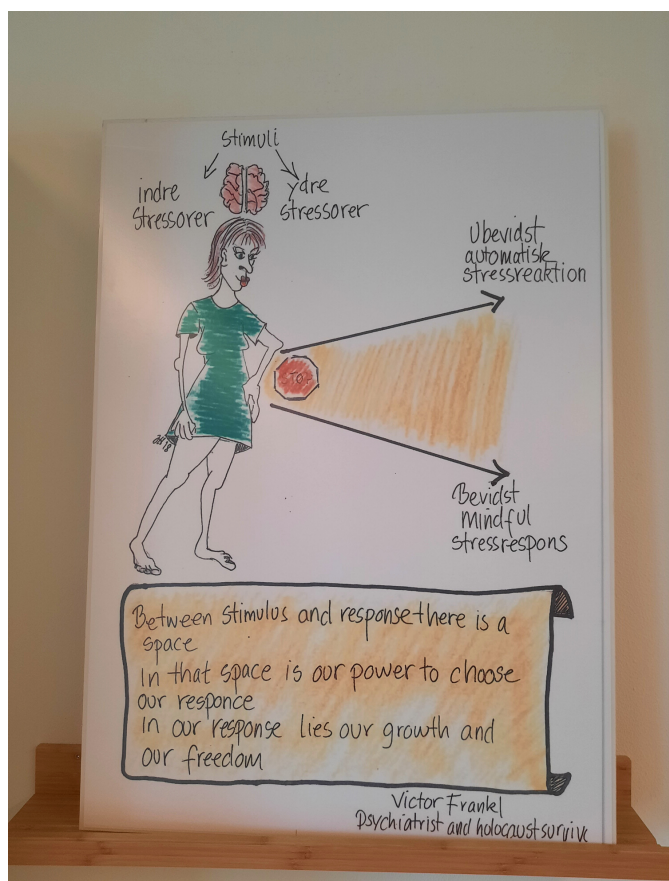 Stimuli
indre
Stressorer
ydre
stressorer
Ubevidst
automatisk
stressreaktion
STOP
Bevidst
Mindful
stressrespons
Between stimulus and response there is a
space
In that space is our power to choose
our responce
In our response lies our growth and
our freedom
Victor Frankl
Psychiatrist and holocaust survive